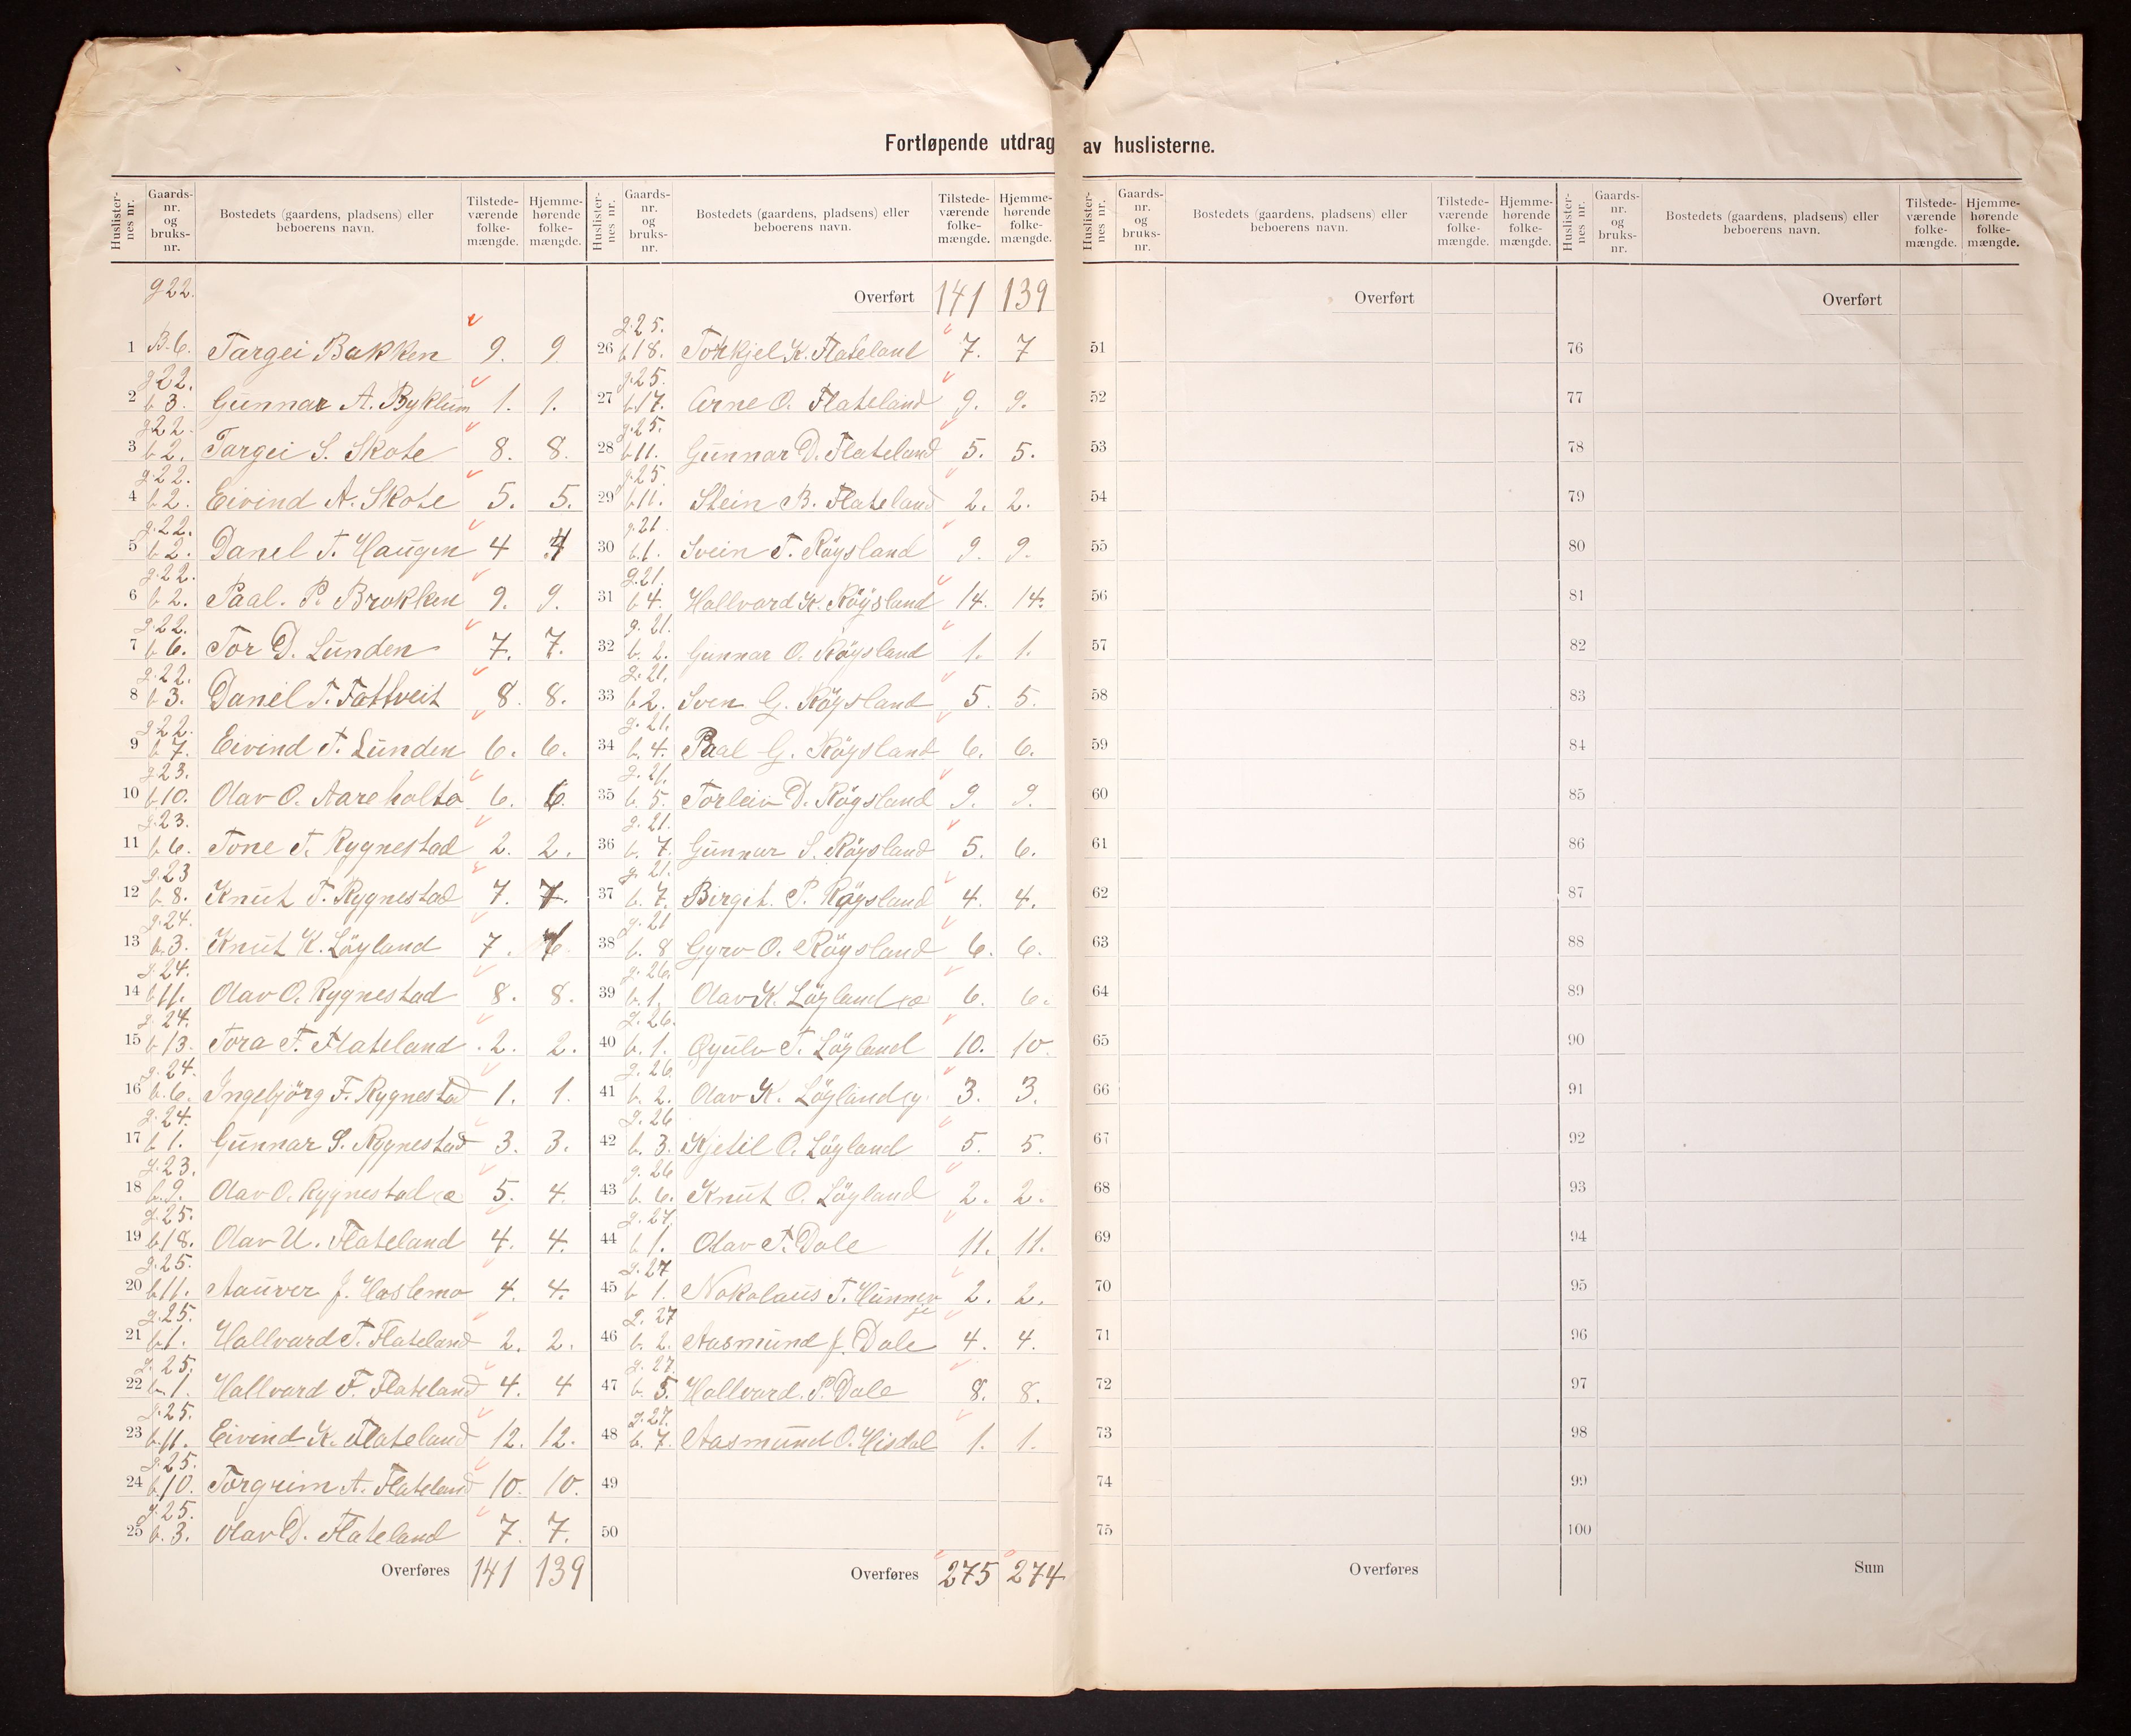 Fortløpende utdrag av huslisterne.
Huslisternes nr. Gaards-nr. og bruks-nr. Bostedets (gaardens, pladsens) eller beboerens navn. Tilstede-værende folke-mængde. Hjemme-hørende folke-mængde.
g 22.
1 B. 6. Targei Bakken 9. 9
g 22.
2 b 3. Gunnar A. Byklum 1. 1.
g 22.
3 b 2. Targei S. Skote 8. 8.
g 22.
4 b 2. Eivind A. Skote 5. 5.
g. 22.
5 b 2. Danel T. Haugen 4 4
g. 22.
6 b 2. Paal. P. Brokken 9. 9.
g. 22.
7 b 6. Tor D. Lunden 7. 7.
g. 22.
8 b 3. Danel T. Tattveit 8. 8.
g 22.
9 b 7. Eivind T. Lunden 6. 6.
g 23.
10 b. 10. Olav O. Aareholto 6. 6.
g. 23.
11 b 6. Tone T. Rygnestad 2. 2.
g. 23
12 b. 8. Knut T. Rygnestad 7. 7.
g. 24.
13 b. 3. Knut K. Löyland 7. 6
g. 24.
14 b 11. Olav O. Rygnestad 8. 8.
g. 24.
15 b 13. Tora T. Flateland 2. 2.
g. 24.
16 b. 6. Ingebjörg F. Rygnestad 1. 1.
g. 24.
17 b 1. Gunnar S. Rygnestad 3. 3.
g. 23.
18 b. 9. Olav O. Rygnestad æ 5. 4.
g. 25.
19 b 18. Olav U. Flateland 4. 4.
g. 25.
20 b. 11. Aauver J. Haslemo 4. 4.
g. 25.
21 b. 1. Hallvard T. Flateland 2. 2.
g. 25.
22 b. 1. Hallvard F. Flateland 4. 4
g. 25.
23 b. 11. Eivind K. Flateland 12. 12.
g. 25.
24 b. 10. Torgrim A. Flateland 10. 10.
g. 25.
25 b. 3. Olav D. Flateland 7. 7.
Overføres 141 139
Huslisternes nr. Gaards-nr. og bruks-nr. Bostedets (gaardens, pladsens) eller beboerens navn. Tilstede-værende folke-mængde. Hjemme-hørende folke-mængde.
Overført 141 139
g. 25.
26 b 18. Torkjel K. Flateland 7. 7
g. 25.
27 b. 17. Arne O. Flateland 9. 9.
g. 25.
28 b 11. Gunnar D. Flateland 5. 5.
g. 25
29 b 11. Stein B. Flateland 2. 2.
g. 21
30 b. 1. Svein T. Röysland 9. 9.
g. 21.
31 b 4. Hallvard K. Röysland 14. 14.
g. 21.
32 b. 2. Gunnar O. Röysland 1. 1.
g. 21.
33 b 2. Sven G. Röysland 5. 5.
g. 21.
34 b. 4. Paal G. Röysland 6. 6.
g. 21.
35 b. 5. Torleiv D. Röysland 9. 9.
g. 21.
36 b. 7. Gunnar S. Röysland 5. 6.
g. 21.
37 b. 7. Birgit. P. Röysland 4. 4.
g. 21
38 b. 8 Gyro O. Röysland 6. 6.
g. 26.
39 b. 1. Olav K. Löyland æ 6. 6.
g. 26.
40 b. 1. Gyulv T. Löyland 10. 10.
g. 26
41 b. 2. Olav K. Löyland y. 3. 3.
g. 26
42 b. 3. Kjetil O. Löyland 5. 5.
g. 26
43 b. 6. Knut O. Löyland 2. 2.
g. 27.
44 b 1. Olav T. Dale 11. 11.
g. 27
45 b 1. Nokolaus T. Hunnevje 2. 2.
g. 27
46 b. 2. Aasmund J. Dale 4. 4.
g. 27.
47 b. 5. Hallvard. P. Dale 8. 8.
g. 27.
48 b. 7. Aasmund O. Hisdal 1. 1.
49
50
Overføres 275 274
Huslisternes nr. Gaards-nr. og bruks-nr. Bostedets (gaardens, pladsens) eller beboerens navn. Tilstede-værende folke-mængde. Hjemme-hørende folke-mængde.
Overført
51
52
53
54
55
56
57
58
59
60
61
62
63
64
65
66
67
68
69
70
71
72
73
74
75
Overføres
Huslisternes nr. Gaards-nr. og bruks-nr. Bostedets (gaardens, pladsens) eller beboerens navn. Tilstede-værende folke-mængde. Hjemme-hørende folke-mængde.
Overført
76
77
78
79
80
81
82
83
84
85
86
87
88
89
90
91
92
93
94
95
96
97
98
99
100
Sum